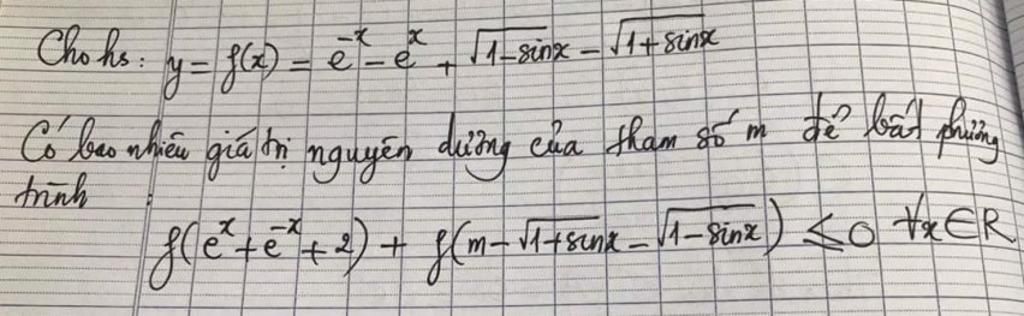 Cho hs: y = f(x) = e^{-x} - e^{x} + √(1-sinx) - √(1+sinx)
Có bao nhiêu giá trị nguyên dương của tham số m để bất phương
trình :
f(e^{x} + e^{-x} + 2) + f(m - √(1+sinx) - √(1-sinx)) ≤ 0 ∀x∈R